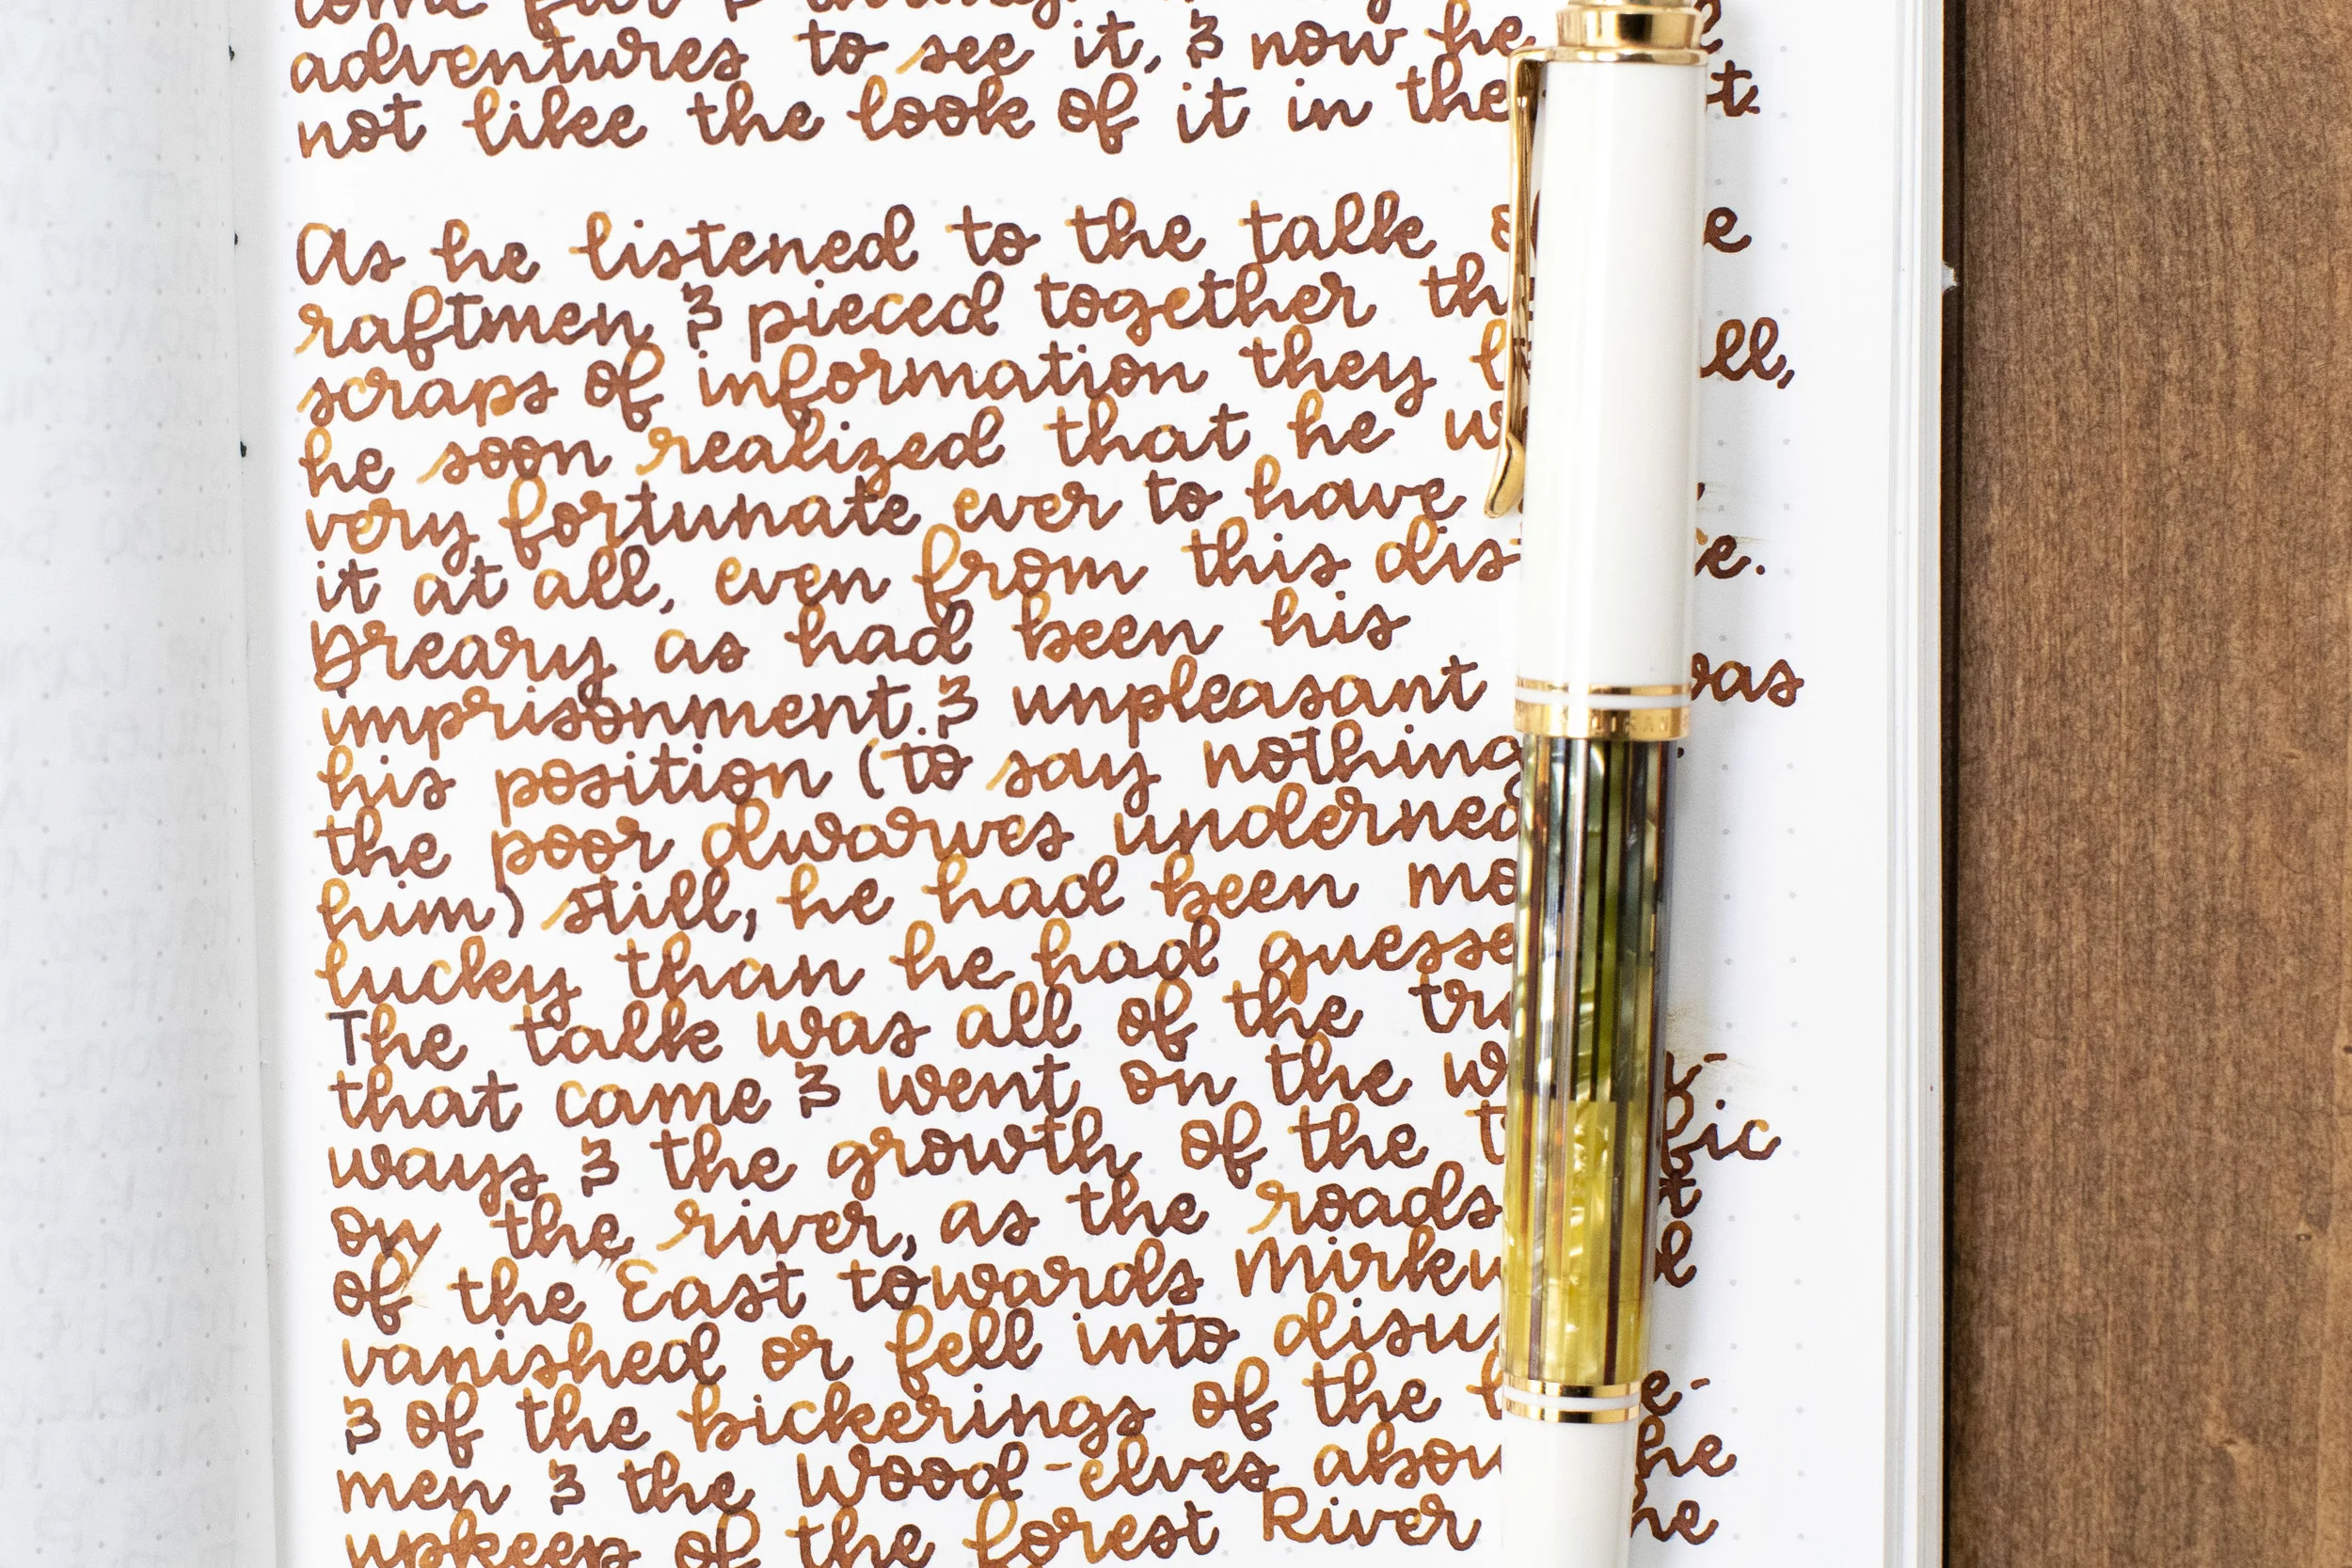 come far & through
adventures to see it, & now he
not like the look of it in the
As he listened to the talk
raftmen & pieced together
scraps of information they
he soon realized that he
very fortunate ever to have
it at all, even from this
Dreary as had been his
imprisonment & unpleasant was
his position (to say nothing
the poor dwarves
him) still, he had been
lucky than he had
The talk was all of the
that came & went on the
ways & the growth of the
on the river, as the roads
of the East towards
vanished or fell into
& of the bickerings of the
men & the Wood-elves
upkeep of the forest River